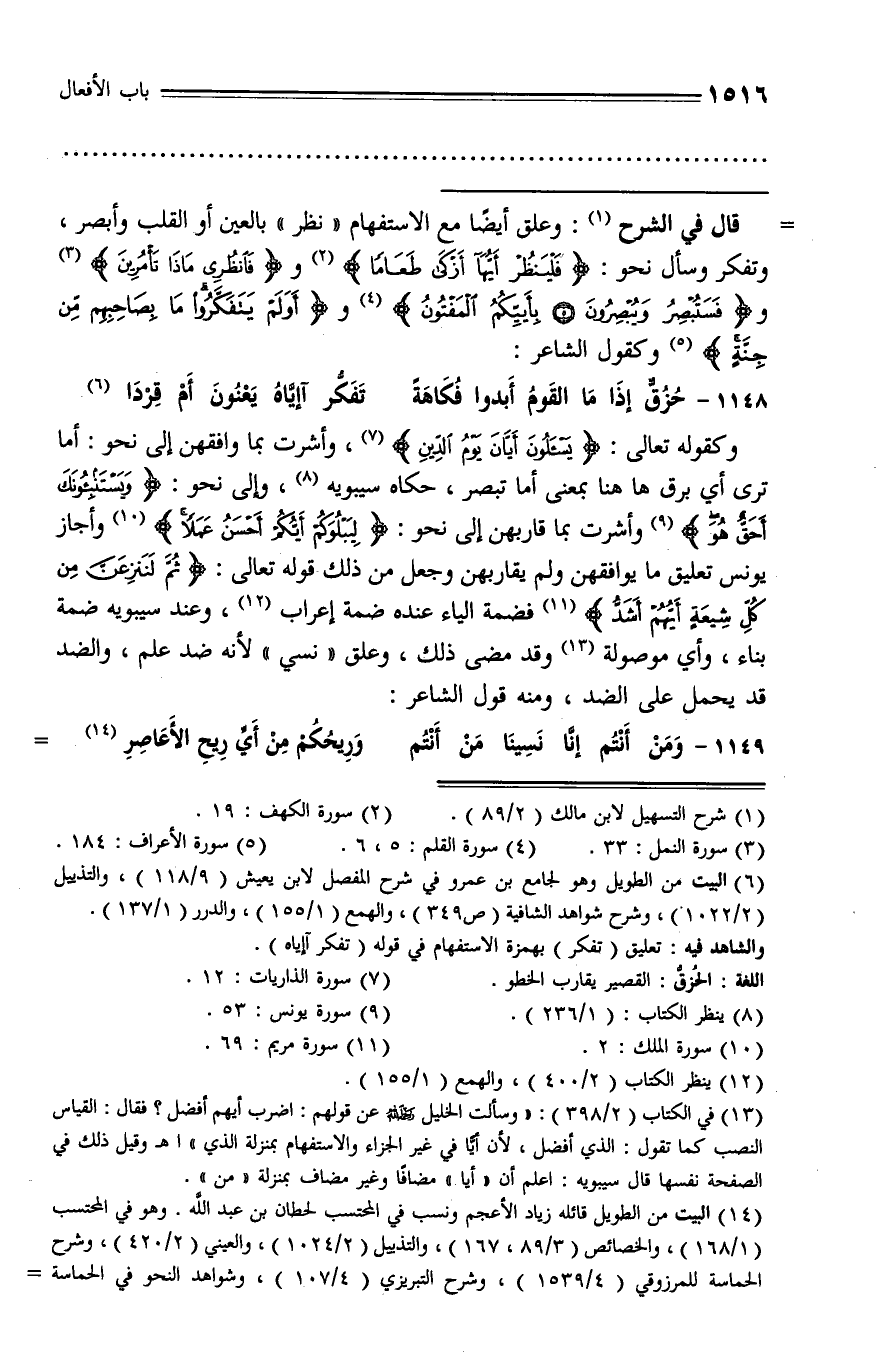 ١٥١٦ باب الأفعال
= قال في الشرح (١) : وعلق أيضًا مع الاستفهام « نظر » بالعين أو القلب وأبصر ،
وتفكر وسأل نحو : ﴿ فَلْيَنظُرْ أَيُّهَآ أَزْكَىٰ طَعَامًا ﴾ (٢) و ﴿ فَٱنظُرِى مَاذَا تَأْمُرِينَ ﴾ (٣)
و ﴿ فَسَتُبْصِرُ وَيُبْصِرُونَ ۝٥ بِأَييِّكُمُ ٱلْمَفْتُونُ ﴾ (٤) و ﴿ أَوَلَمْ يَتَفَكَّرُوا۟ مَا بِصَاحِبِهِم مِّن
جِنَّةٍ ﴾ (٥) وكقول الشاعر :
١١٤٨ - حُزُقٌّ إذَا مَا القَومُ أَبدوا فُكَاهَةً تَفَكَّر آإيَّاهُ يَعْنُونَ أَمْ قِرْدَا (٦)
وكقوله تعالى : ﴿ يَسْـَٔلُونَ أَيَّانَ يَوْمُ ٱلدِّينِ ﴾ (٧) ، وأشرت بما وافقهن إلى نحو : أما
ترى أي برق ها هنا بمعنى أما تبصر ، حكاه سيبويه (٨) ، وإلى نحو : ﴿ وَيَسْتَنۢبِـُٔونَكَ
أَحَقٌّ هُوَ ﴾ (٩) وأشرت بما قاربهن إلى نحو : ﴿ لِيَبْلُوَكُمْ أَيُّكُمْ أَحْسَنُ عَمَلًا ﴾ (١٠) وأجاز
يونس تعليق ما يوافقهن ولم يقاربهن وجعل من ذلك قوله تعالى : ﴿ ثُمَّ لَنَنزِعَنَّ مِن
كُلِّ شِيعَةٍ أَيُّهُمْ أَشَدُّ ﴾ (١١) فضمة الياء عنده ضمة إعراب (١٢) ، وعند سيبويه ضمة
بناء ، وأي موصولة (١٣) وقد مضى ذلك ، وعلق « نسي » لأنه ضد علم ، والضد
قد يحمل على الضد ، ومنه قول الشاعر :
١١٤٩ - وَمَنْ أَنْتُم إنَّا نَسِينَا مَنْ أَنْتُم وَرِيحُكُمْ مِنْ أَيِّ رِيحِ الأَعَاصِرِ (١٤) =
(١) شرح التسهيل لابن مالك ( ٨٩/٢ ) . (٢) سورة الكهف : ١٩ .
(٣) سورة النمل : ٣٣ . (٤) سورة القلم : ٥ ، ٦ . (٥) سورة الأعراف : ١٨٤ .
(٦) البيت من الطويل وهو لجامع بن عمرو في شرح المفصل لابن يعيش ( ١١٨/٩ ) ، والتذييل
( ١٠٢٢/٢ ) ، وشرح شواهد الشافية ( ص٣٤٩ ) ، والهمع ( ١٥٥/١ ) ، والدرر ( ١٣٧/١ ) .
والشاهد فيه : تعليق ( تفكر ) بهمزة الاستفهام في قوله ( تفكر آإياه ) .
اللغة : الحُزُقُّ : القصير يقارب الخطو . (٧) سورة الذاريات : ١٢ .
(٨) ينظر الكتاب : ( ٢٣٦/١ ) . (٩) سورة يونس : ٥٣ .
(١٠) سورة الملك : ٢ . (١١) سورة مريم : ٦٩ .
(١٢) ينظر الكتاب ( ٤٠٠/٢ ) ، والهمع ( ١٥٥/١ ) .
(١٣) في الكتاب ( ٣٩٨/٢ ) : « وسألت الخليل عن قولهم : اضرب أيهم أفضل ؟ فقال : القياس
النصب كما تقول : الذي أفضل ، لأن أيًّا في غير الجزاء والاستفهام بمنزلة الذي » ا هـ وقيل ذلك في
الصفحة نفسها قال سيبويه : اعلم أن « أيا » مضافًا وغير مضاف بمنزلة « من » .
(١٤) البيت من الطويل قائله زياد الأعجم ونسب في المحتسب لحطان بن عبد اللَّه . وهو في المحتسب
( ١٦٨/١ ) ، والخصائص ( ٨٩/٣ ، ١٦٧ ) ، والتذييل ( ١٠٢٤/٢ ) ، والعيني ( ٤٢٠/٢ ) ، وشرح
الحماسة للمرزوقي ( ١٥٣٩/٤ ) ، وشرح التبريزي ( ١٠٧/٤ ) ، وشواهد النحو في الحماسة =